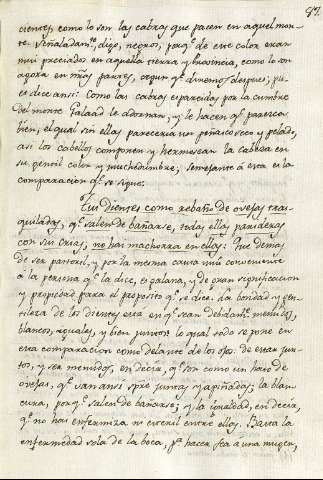 97.
cientes, como lo son las cabras que pacen en aquel mon-
te. Señaladam.te digo, negros, porq.e de este color eran
mui preciados en aquella tierra y provincia, como lo son
agora en m.as partes, segun q.e diremos despues; pu-
es dice ansi: Como las cabras esparcidas por la cumbre
del monte Galaad le adornan, y le hacen q.e parezca
bien, el qual sin ellas pareceria un peñasco seco y pelado,
asi los cabellos componen y hermosean la cabeza en
su gentil color y muchedumbre; Semejante à esta es la
comparacion q.e se sigue.
Tus dientes como rebaño de ovejas tras-
quiladas, q.e salen de bañarse, todas ellas parideras
con sus crias, no hai machorra en ellos. Que demas
de ser pastoril, y por la mesma causa mui conveniente
à la persona q.e la dice, es galana, y de gran significacion
y propiedad para el proposito q.e se dice. La bondad y gen-
tileza de los dientes esta en q.e sean debidam.te menudos,
blancos, iguales, y bien juntos: lo qual todo se pone en
esta comparacion como delante de los ojos: de estar jun-
tos, y ser menudos, en decir, q.e son como un hato de
ovejas, q.e van ansi spre juntas y apiñadas; la blan-
cura, porq.e salen de bañarse; y la igualdad, en decir,
q.e no hai enfermiza ni esteril entre ellas. Basta la
enfermedad sola de la boca, p.a hacer fea à una muger,